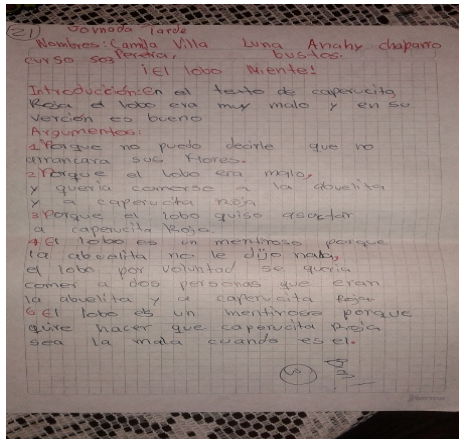 21 Jornada Tarde
Nombres: Camila Villa Luna Anahy chaparro
curso 503 Pereira, bustos.
¡El lobo Miente!
Introducción: En el texto de caperucita
Roja el lobo era muy malo y en su
verción es bueno
Argumentos:
1 Porque no pudo decirle que no
arrancara sus flores.
2 Porque el lobo era malo,
y quería comerse a la abuelita
y a caperucita roja
3 Porque el lobo quiso asustar
a caperucita Roja.
4 El lobo es un mentiroso porque
la abuelita no le dijo nada,
el lobo por voluntad se queria
comer a dos personas que eran
la abuelita y a caperucita Roja.
6 El lobo es un mentiroso porque
quire hacer que caperucita Roja
sea la mala cuando es el.